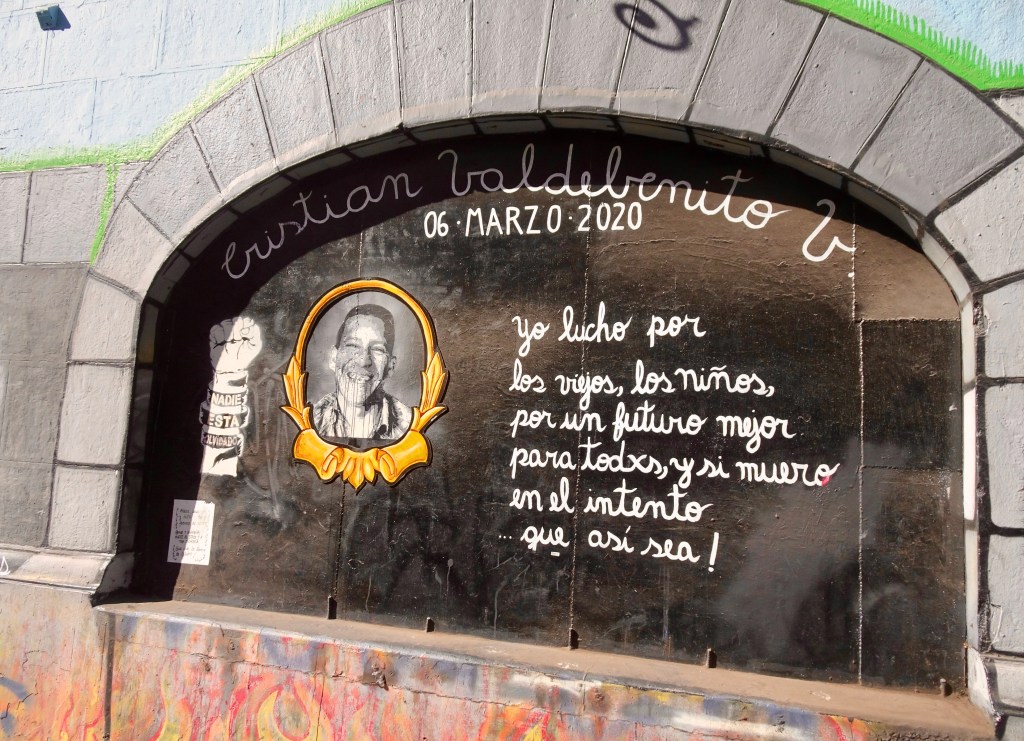 Cristian Valdebenito V.
06·MARZO·2020
yo lucho por
los viejos, los niños,
por un futuro mejor
para todxs, y si muero
en el intento
... que así sea!
NADIE
ESTA
OLVIDADO